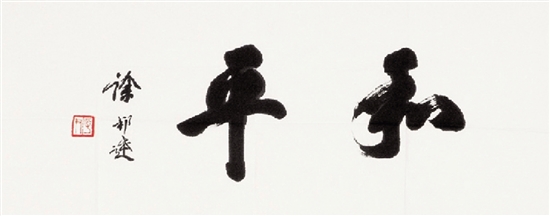 和平
徐邦达